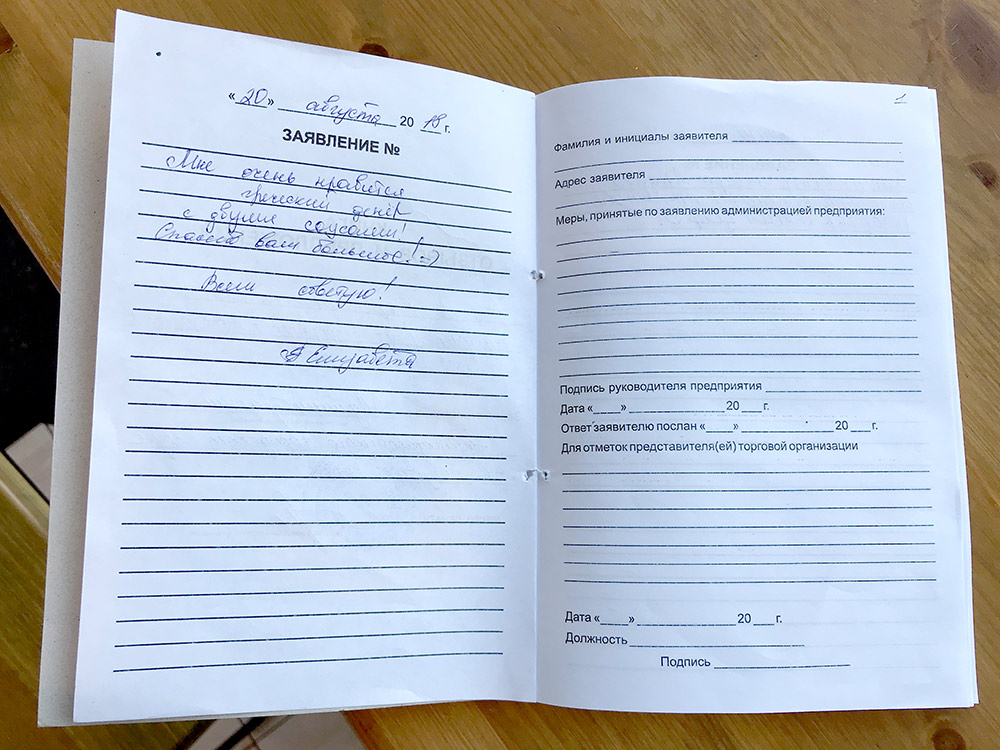 «20» августа 2019 г.
ЗАЯВЛЕНИЕ №
Мне очень нравится
греческий денер
с двумя соусами!
Спасибо вам большое! :-)
Всем советую!
Елизавета
1
Фамилия и инициалы заявителя
Адрес заявителя
Меры, принятые по заявлению администрацией предприятия:
Подпись руководителя предприятия
Дата «____» ________________ 20 ___ г.
Ответ заявителю послан «____» ________________ 20 ___ г.
Для отметок представителя(ей) торговой организации
Дата «____» ________________ 20 ___ г.
Должность
Подпись